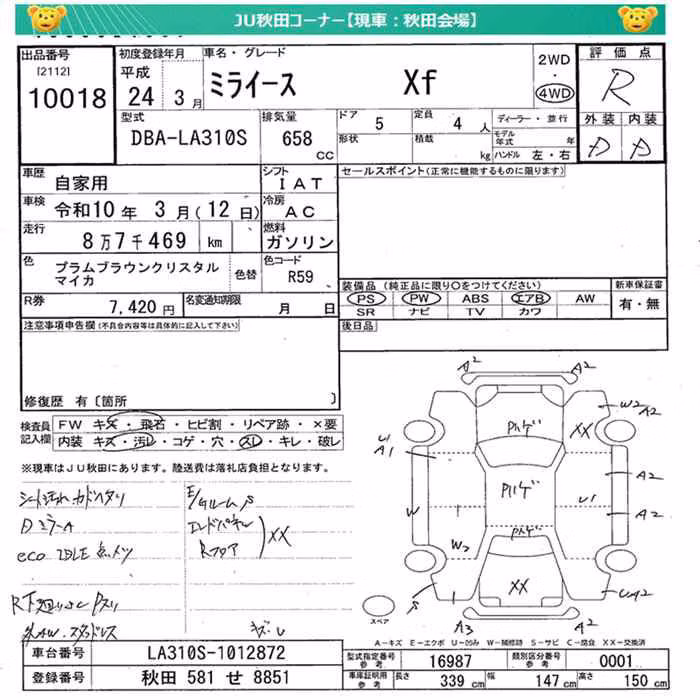 JU秋田コーナー【現車：秋田会場】
出品番号
[2112]
10018
初度登録年月
平成
24 3月
車名・グレード
ミライース Xf
2WD
・
4WD
評価点
R
外装 内装
D D
型式
DBA-LA310S
排気量
658 CC
ドア 5
形状
定員 4人
積載 kg
ディーラー・並行
モデル年式 年
ハンドル 左・右
車歴
自家用
シフト
IAT
セールスポイント(正常に機能するものに限ります)
車検
令和10年 3月(12日)
冷房
AC
走行
8万7千469 km
燃料
ガソリン
色
プラムブラウンクリスタル
マイカ
色替
色コード
R59
装備品(純正品に限り○をつけてください)
PS PW ABS エアB AW
SR ナビ TV カワ
新車保証書
有・無
R券
7,420円
名変通知期限
月 日
後日品
注意事項申告欄(不具合内容等は具体的に記入して下さい)
修復歴 有〔箇所 〕
検査員
記入欄
FW キズ・飛石・ヒビ割・リペア跡・×要
内装 キズ・汚レ・コゲ・穴・スレ・キレ・破レ
※現車はJU秋田にあります。陸送費は落札店負担となります。
シート汚れ
DミラーA
eco IDLE 点メツ
E/Gルーム S
エンドパネル
Rフロア
XX
A2 A2
W2 A2
XX
U1
A1
Pハゲ
A2
Pハゲ
U1
A2
W
Pハゲ
W2
XX
S
UA2
A3 A2
スペア
A-キズ E-エクボ U-凹み W-補修跡 S-サビ C-腐食 XX-交換済
車台番号 LA310S-1012872
登録番号 秋田 581 せ 8851
型式指定番号
参考
16987
類別区分番号
参考
0001
車庫証明用
参考
長さ 339 cm
幅 147 cm
高さ 150 cm